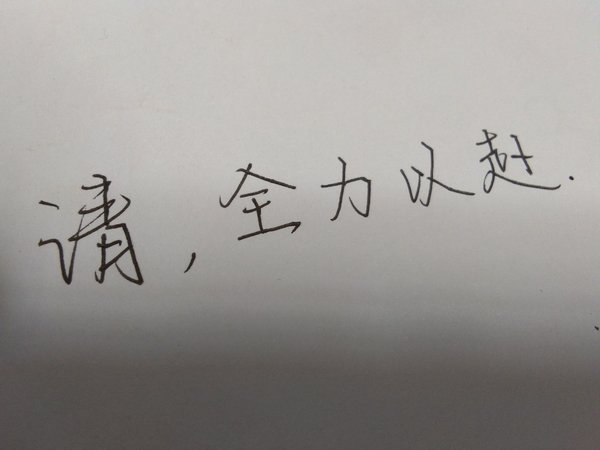 请,全力以赴.